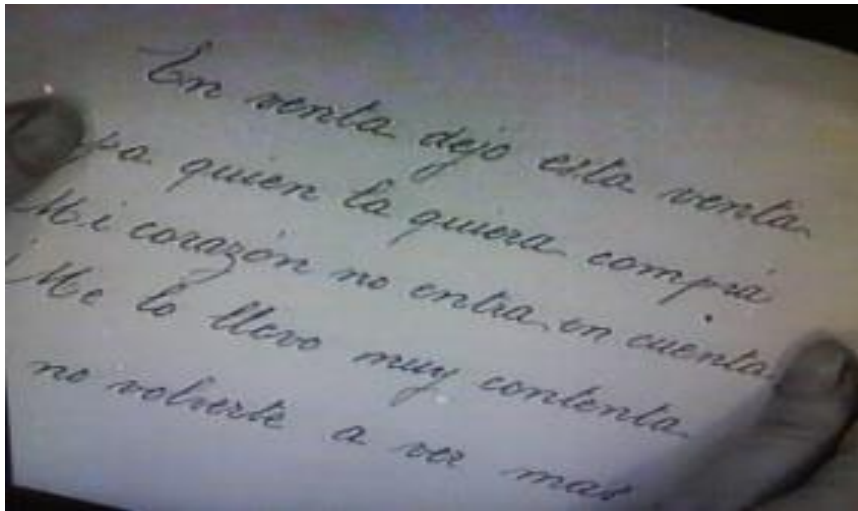 En venta dejo esta venta
pa quien la quiera comprá
Mi corazón no entra en cuenta
Me lo llevo muy contenta
no volverte a ver mas